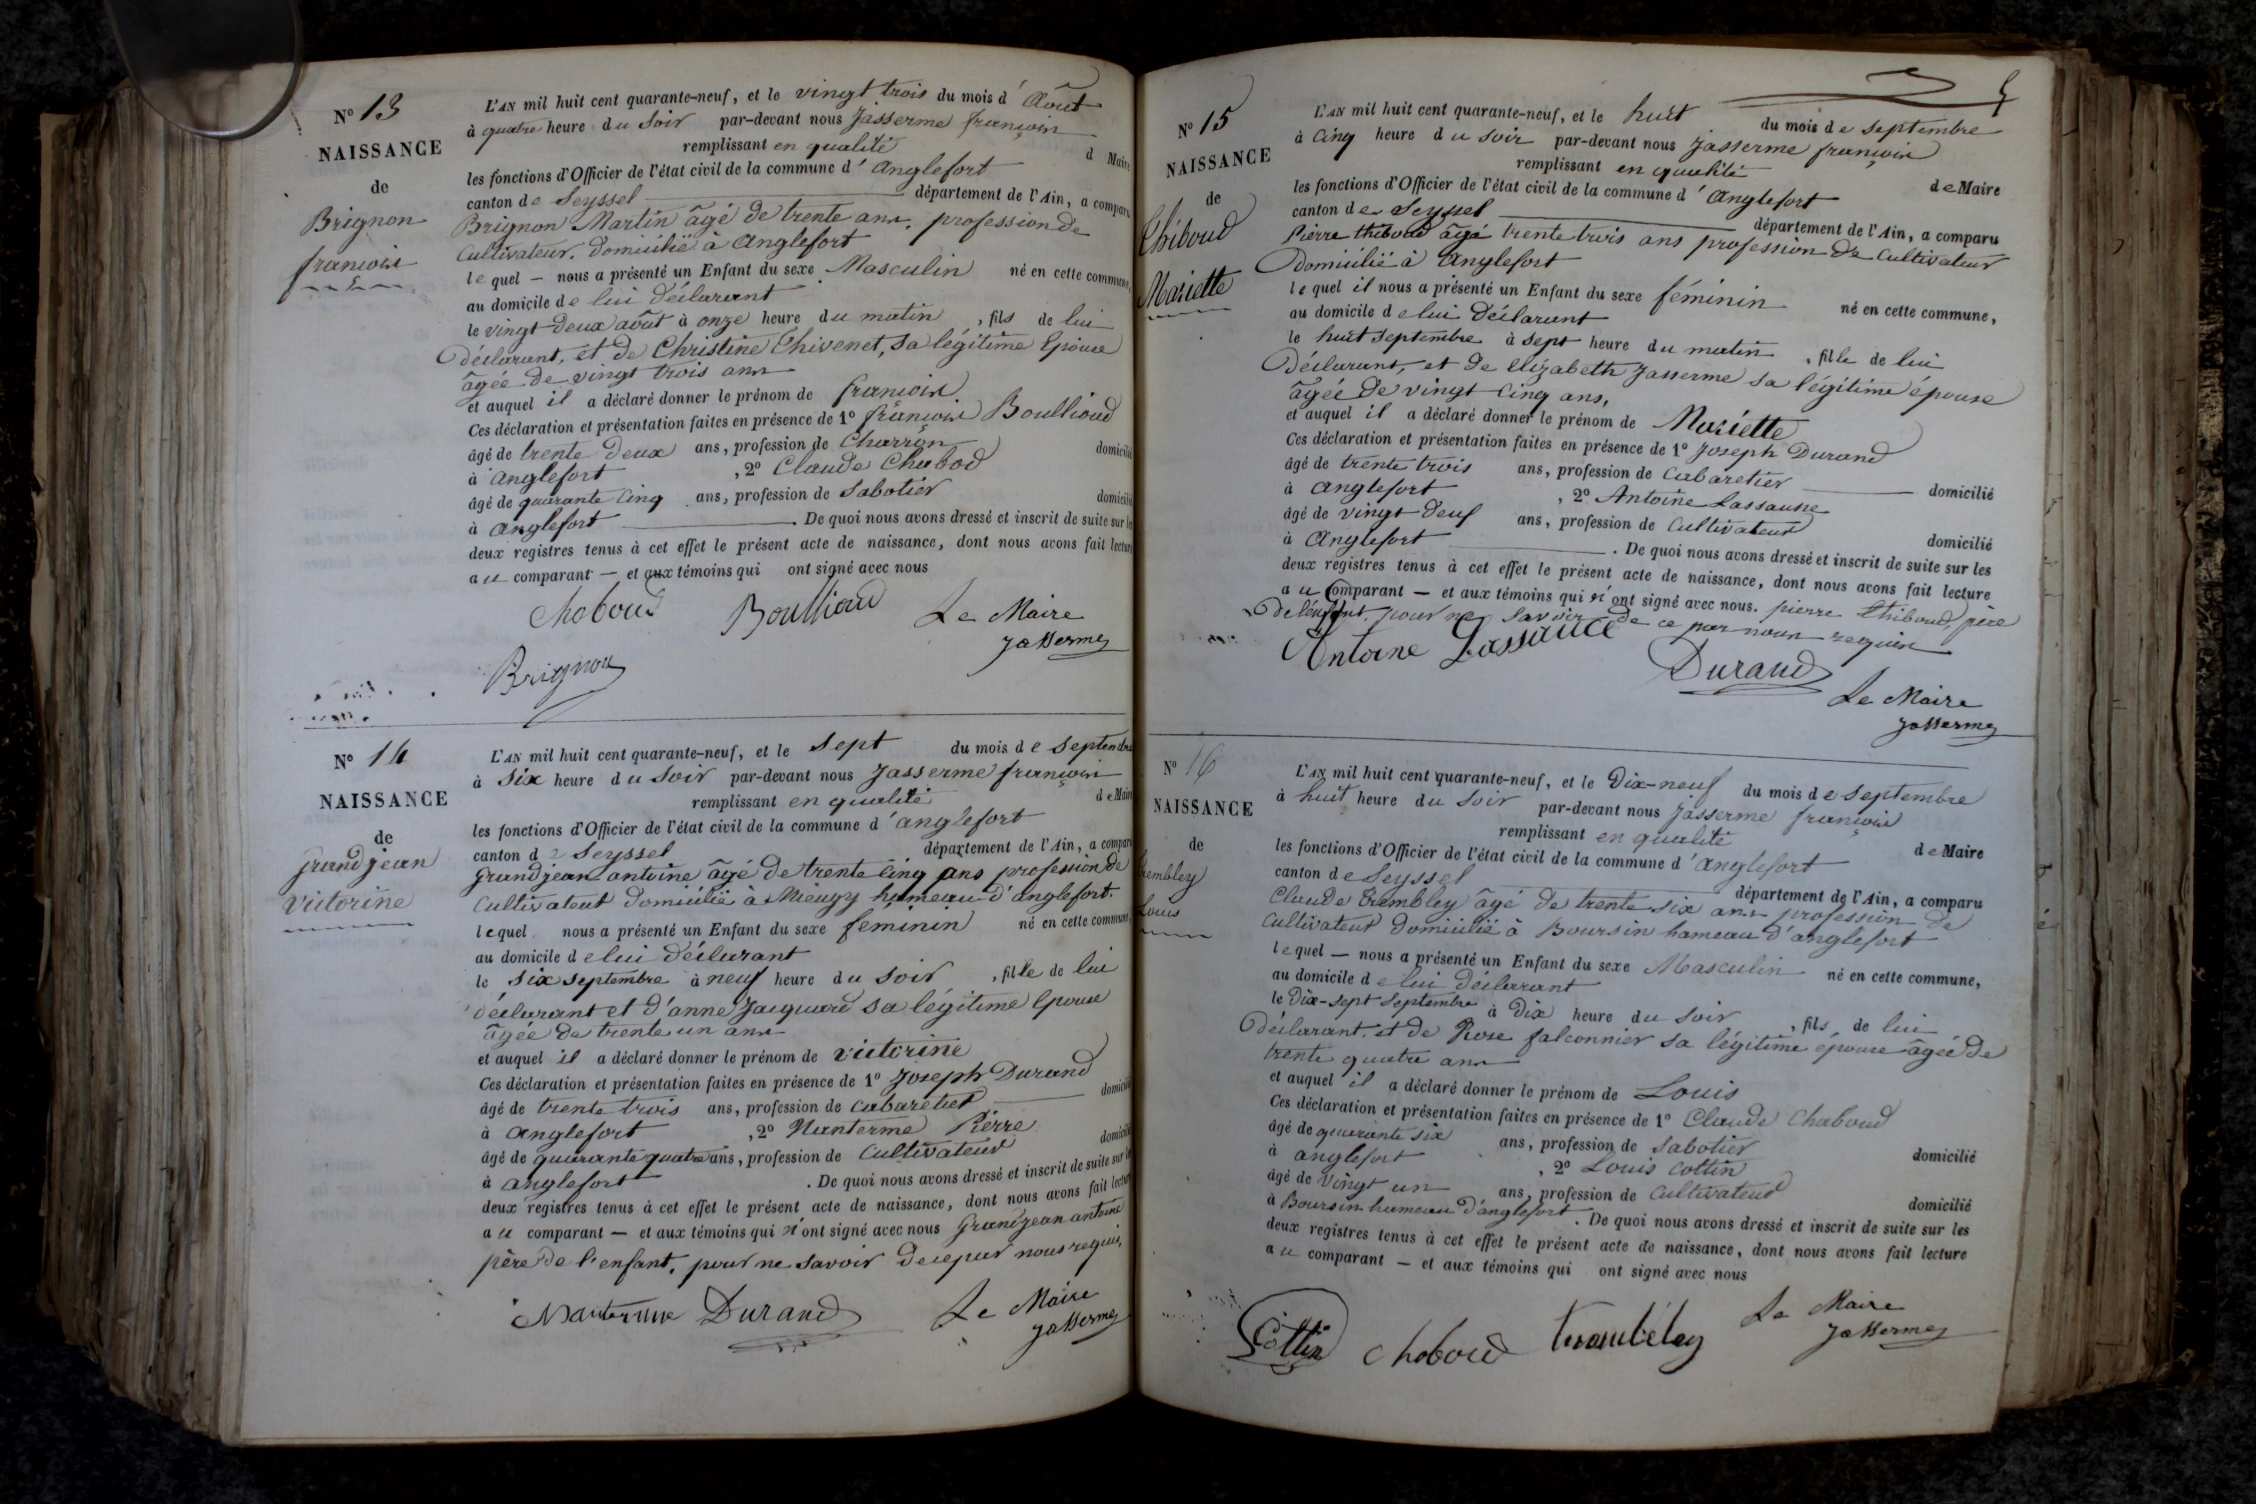 N° 13
NAISSANCE
de
Brignon
françois
L'AN mil huit cent quarante-neuf, et le vingt trois du mois d'Août
à quatre heure du Soir par-devant nous Jasserme françois
remplissant en qualité d Maire
les fonctions d'Officier de l'état civil de la commune d'Anglefort
canton de Seyssel département de l'Ain, a comparu
Brignon Martin âgé de trente ans, profession de
Cultivateur, domicilié à Anglefort
le quel — nous a présenté un Enfant du sexe Masculin né en cette commune,
au domicile de lui déclarant
le vingt-deux août à onze heure du matin, fils de lui
déclarant, et de Christine Thivenet, sa légitime Epouse
âgée de vingt trois ans
et auquel il a déclaré donner le prénom de françois
Ces déclaration et présentation faites en présence de 1° françois Boullioud
âgé de trente deux ans, profession de Charron domicilié
à Anglefort, 2° Claude Chabod
âgé de quarante cinq ans, profession de Sabotier domicilié
à Anglefort. De quoi nous avons dressé et inscrit de suite sur les
deux registres tenus à cet effet le présent acte de naissance, dont nous avons fait lecture
au comparant — et aux témoins qui ont signé avec nous
Chaboud Boullioud Le Maire
Jasserme
Brignon
N° 14
NAISSANCE
de
Grandjean
Victorine
L'AN mil huit cent quarante-neuf, et le sept du mois de Septembre
à six heure du Soir par-devant nous Jasserme françois
remplissant en qualité de Maire
les fonctions d'Officier de l'état civil de la commune d'anglefort
canton de Seyssel département de l'Ain, a comparu
Grandjean antoine âgé de trente cinq ans profession de
Cultivateur domicilié à Mieugy hameau d'anglefort.
lequel nous a présenté un Enfant du sexe féminin né en cette commune,
au domicile de lui déclarant
le six septembre à neuf heure du soir, fille de lui
déclarant et d'anne Jacquard sa légitime Epouse
âgée de trente un ans
et auquel il a déclaré donner le prénom de victorine
Ces déclaration et présentation faites en présence de 1° Joseph Durand
âgé de trente trois ans, profession de cabaretier domicilié
à Anglefort, 2° Nanterme Pierre
âgé de quarante quatre ans, profession de Cultivateur domicilié
à Anglefort. De quoi nous avons dressé et inscrit de suite sur les
deux registres tenus à cet effet le présent acte de naissance, dont nous avons fait lecture
au comparant — et aux témoins qui n'ont signé avec nous Grandjean antoine
père de l'enfant, pour ne savoir de ce par nous requis,
Nanterme Durand Le Maire
Jasserme
5
N° 15
NAISSANCE
de
Thiboud
Mariette
L'AN mil huit cent quarante-neuf, et le huit du mois de septembre
à Cinq heure du soir par-devant nous Jasserme françois
remplissant en qualité de Maire
les fonctions d'Officier de l'état civil de la commune d'Anglefort
canton de Seyssel département de l'Ain, a comparu
Pierre thiboud âgé trente trois ans profession de Cultivateur
domicilié à Anglefort
le quel il nous a présenté un Enfant du sexe féminin né en cette commune,
au domicile de lui déclarant
le huit septembre à sept heure du matin, fille de lui
déclarant, et de Elizabeth Jasserme sa légitime épouse
âgée de vingt cinq ans,
et auquel il a déclaré donner le prénom de Mariette
Ces déclaration et présentation faites en présence de 1° Joseph Durand
âgé de trente trois ans, profession de cabaretier domicilié
à Anglefort, 2° Antoine Lassausse
âgé de vingt-deuf ans, profession de Cultivateur domicilié
à Anglefort. De quoi nous avons dressé et inscrit de suite sur les
deux registres tenus à cet effet le présent acte de naissance, dont nous avons fait lecture
au comparant — et aux témoins qui n'ont signé avec nous. pierre thiboud, père
de l'enfant, pour ne savoir de ce par nous requis
Antoine Lassauce Durand Le Maire
Jasserme
N° 16
NAISSANCE
de
Trembley
Louis
L'AN mil huit cent quarante-neuf, et le Dix-neuf du mois de septembre
à huit heure du Soir par-devant nous Jasserme françois
remplissant en qualité de Maire
les fonctions d'Officier de l'état civil de la commune d'Anglefort
canton de Seyssel département de l'Ain, a comparu
Claude Trembley âgé de trente six ans profession de
Cultivateur domicilié à Boursin hameau d'anglefort
le quel — nous a présenté un Enfant du sexe Masculin né en cette commune,
au domicile de lui déclarant
le Dix-sept Septembre à Dix heure du Soir, fils de lui
déclarant. et de Rose falconnier sa légitime épouse âgée de
trente quatre ans
et auquel il a déclaré donner le prénom de Louis
Ces déclaration et présentation faites en présence de 1° Claude Chaboud
âgé de quarante six ans, profession de Sabotier domicilié
à anglefort, 2° Louis cottin
âgé de vingt un ans, profession de Cultivateur domicilié
à Boursin hameau d'anglefort. De quoi nous avons dressé et inscrit de suite sur les
deux registres tenus à cet effet le présent acte de naissance, dont nous avons fait lecture
au comparant — et aux témoins qui ont signé avec nous
Cottin Chaboud trembley Le Maire
Jasserme